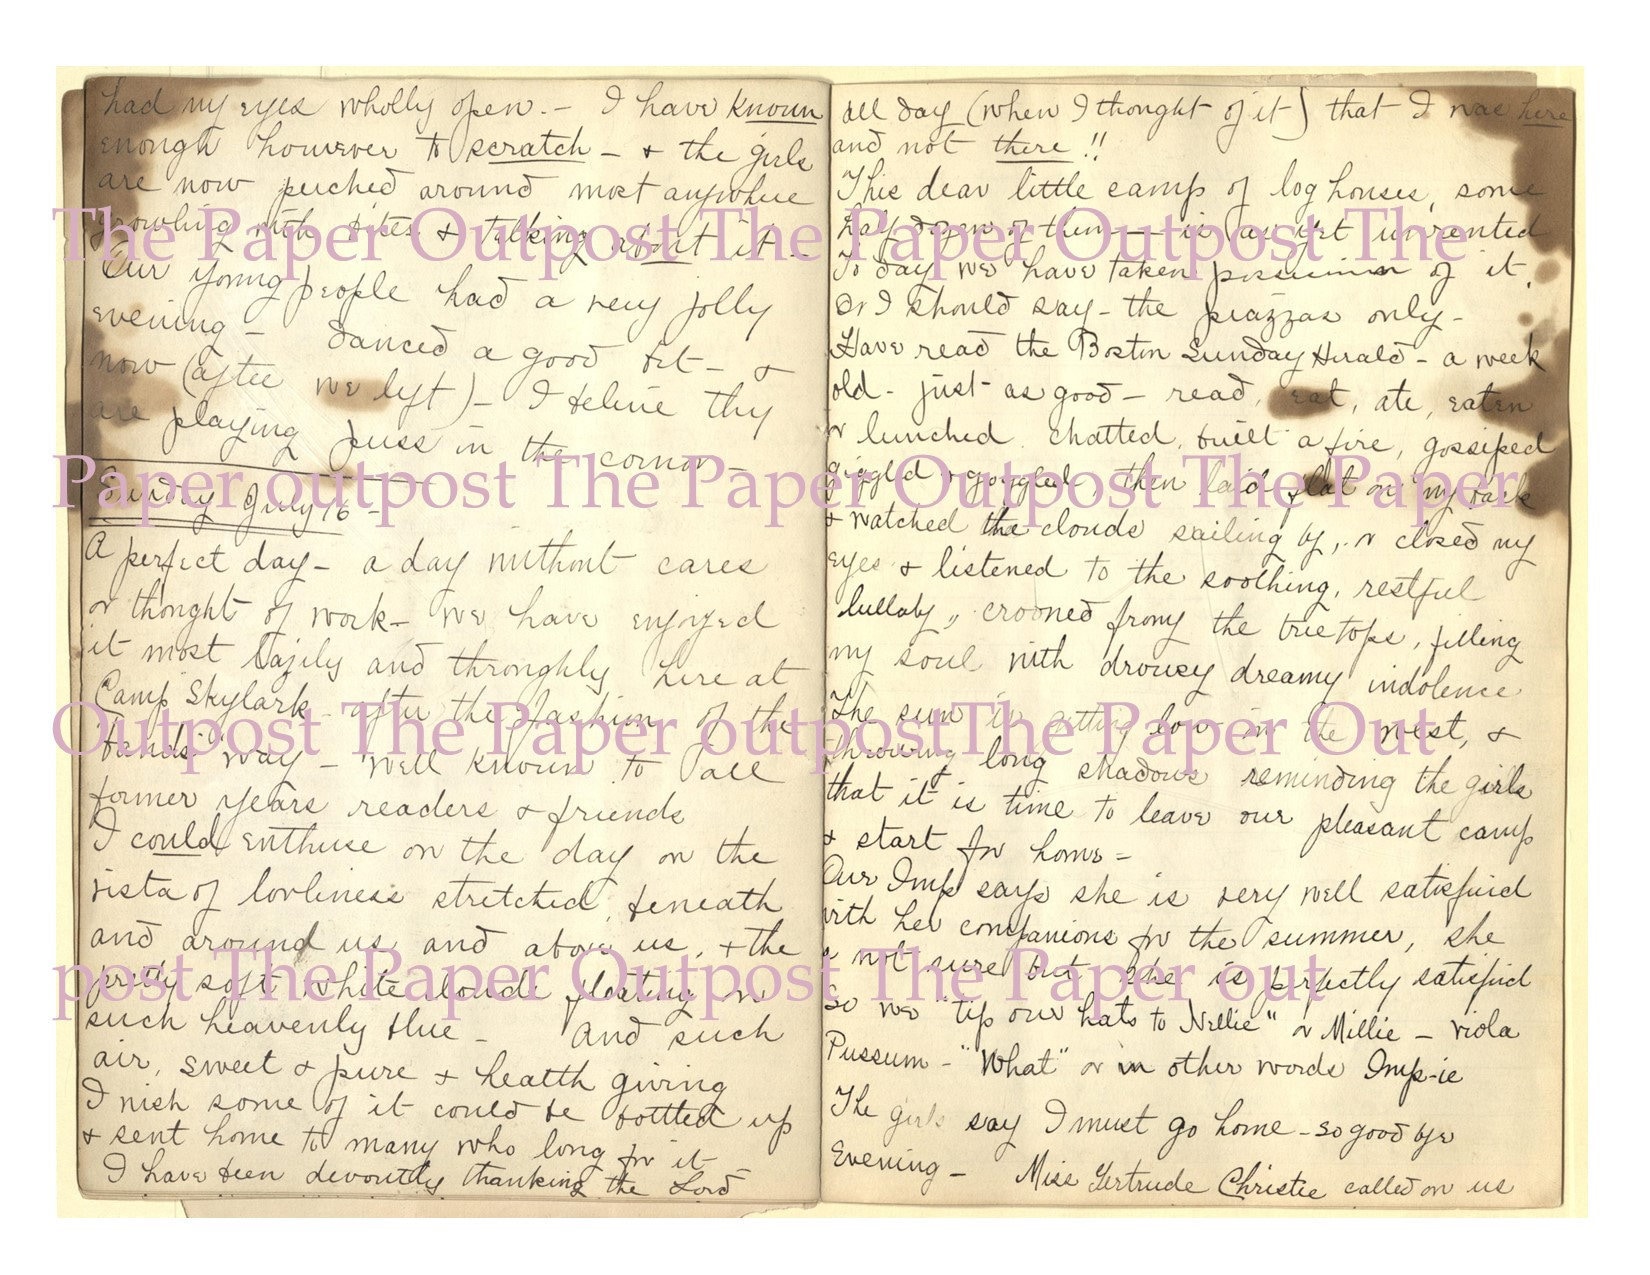 had my eyes wholly open. - I have known
enough however to scratch - & the girls
are now perched around most anywhere
growling with bites & talking about it -
Our young people had a very jolly
evening - danced a good bit - &
now (after we left) - I believe they
are playing puss in the corner -
Sunday July 16 -
A perfect day - a day without cares
or thought of work - we have enjoyed
it most lazily and throughly here at
Camp Skylark - After the fashion of the
"bands" way - well known to all
former years readers & friends
I could enthuse on the day on the
vista of lovliness stretched beneath
and around us and above us, & the
pretty soft white clouds floating in
such heavenly blue - And such
air, sweet & pure & health giving
I wish some of it could be bottled up
& sent home to many who long for it
I have been devoutly thanking the Lord
all day (when I thought of it) that I was here
and not there !!
This dear little camp of log houses, some
half dozen of them - is as yet unrented
To day we have taken possession of it,
Or I should say - the piazzas only -
Have read the Boston Sunday Herald - a week
old - just as good - read, eat, ate, eaten
or lunched, chatted, built a fire, gossiped
giggled & goggled, then laid flat on my back
& watched the clouds sailing by, or closed my
eyes & listened to the soothing, restful
lullaby, crooned from the treetops, filling
my soul with drowsy dreamy indolence
The sun is getting low in the west, &
throwing long shadows reminding the girls
that it is time to leave our pleasant camp
& start for home -
Our Imp says she is very well satisfied
with her companions for the summer, she
not sure but she is perfectly satisfied
So we "tip our hats to Nellie" or Millie - Viola
Pussum - "What" or in other words Imp-ie
The girls say I must go home - so good bye
Evening - Miss Gertrude Christie called on us
The Paper Outpost The Paper Outpost The
Paper outpost The Paper Outpost The Paper
Outpost The Paper outpost The Paper Out
post The Paper Outpost The Paper out